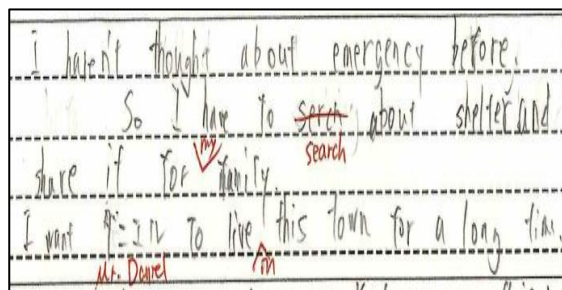 I haven't thought about emergency before.
So I have to serch about shelter and
search
share it for my family.
I want ダニエル to live in this town for a long time.
Mr. Daniel